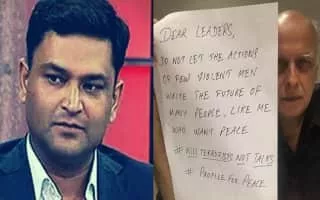 DEAR LEADERS,
DO NOT LET THE ACTIONS
OF FEW VIOLENT MEN
WRITE THE FUTURE OF
MANY PEOPLE, LIKE ME
WHO WANT PEACE
# KILL TERRORISTS NOT TALKS
# PROFILE FOR PEACE